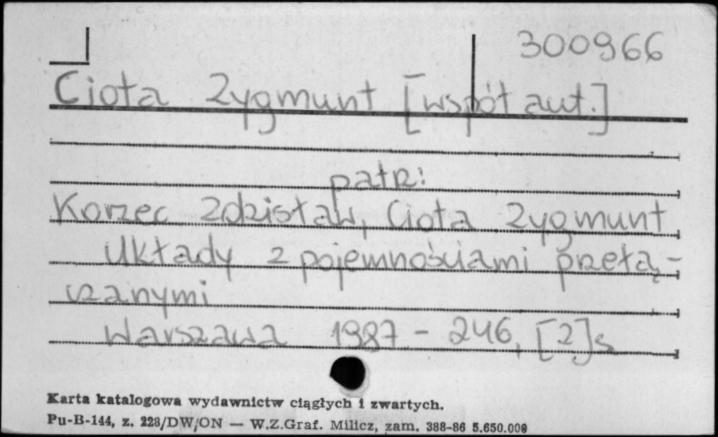 300966
Ciota Zygmunt [współaut.]
patrz:
Korzec Zdzisław, Ciota Zygmunt
Układy z pojemnościami przełą-
czanymi
Warszawa 1987 - 246, [2]s
Karta katalogowa wydawnictw ciągłych i zwartych.
Pu-B-144, z. 228/DW/ON — W.Z.Graf. Milicz, zam. 388-86 5.650.000